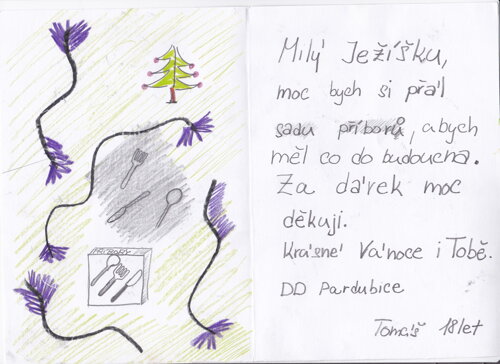 PŘÍBORY
Milý Ježíšku,
moc bych si přál
sadu příborů, abych
měl co do budoucna.
Za dárek moc
děkuji.
Krásné Vánoce i Tobě.
DD Pardubice
Tomáš 18 let